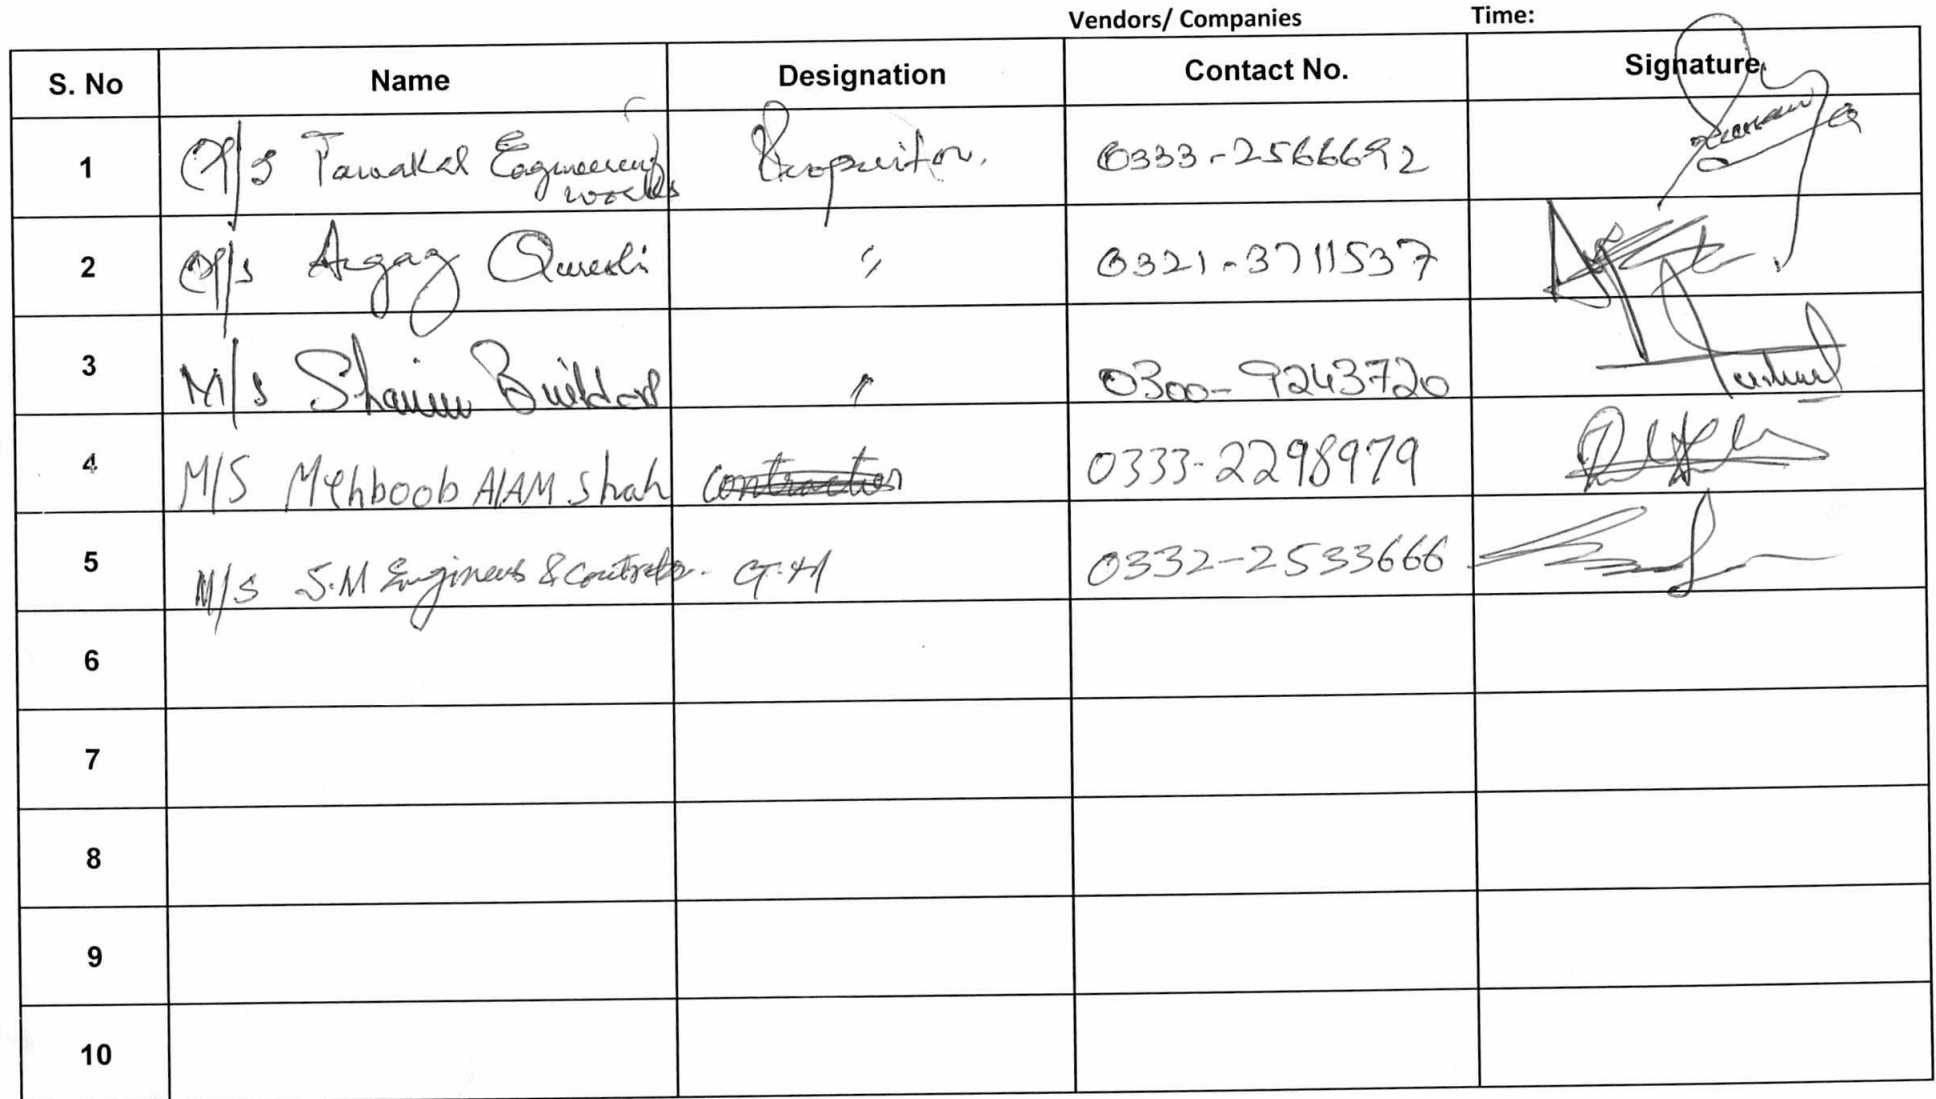 Vendors/ Companies Time:
S. No Name Designation Contact No. Signature
1 M/s Tawakal Engineering works Propritor. 0333-2566692
2 M/s Qureshi " 0321-3711537
3 M/s Builders " 0300-9243720
4 M/S Mehboob AlAM Shah contractor 0333-2298979
5 M/s S.M Engineers & 0332-2533666
6
7
8
9
10